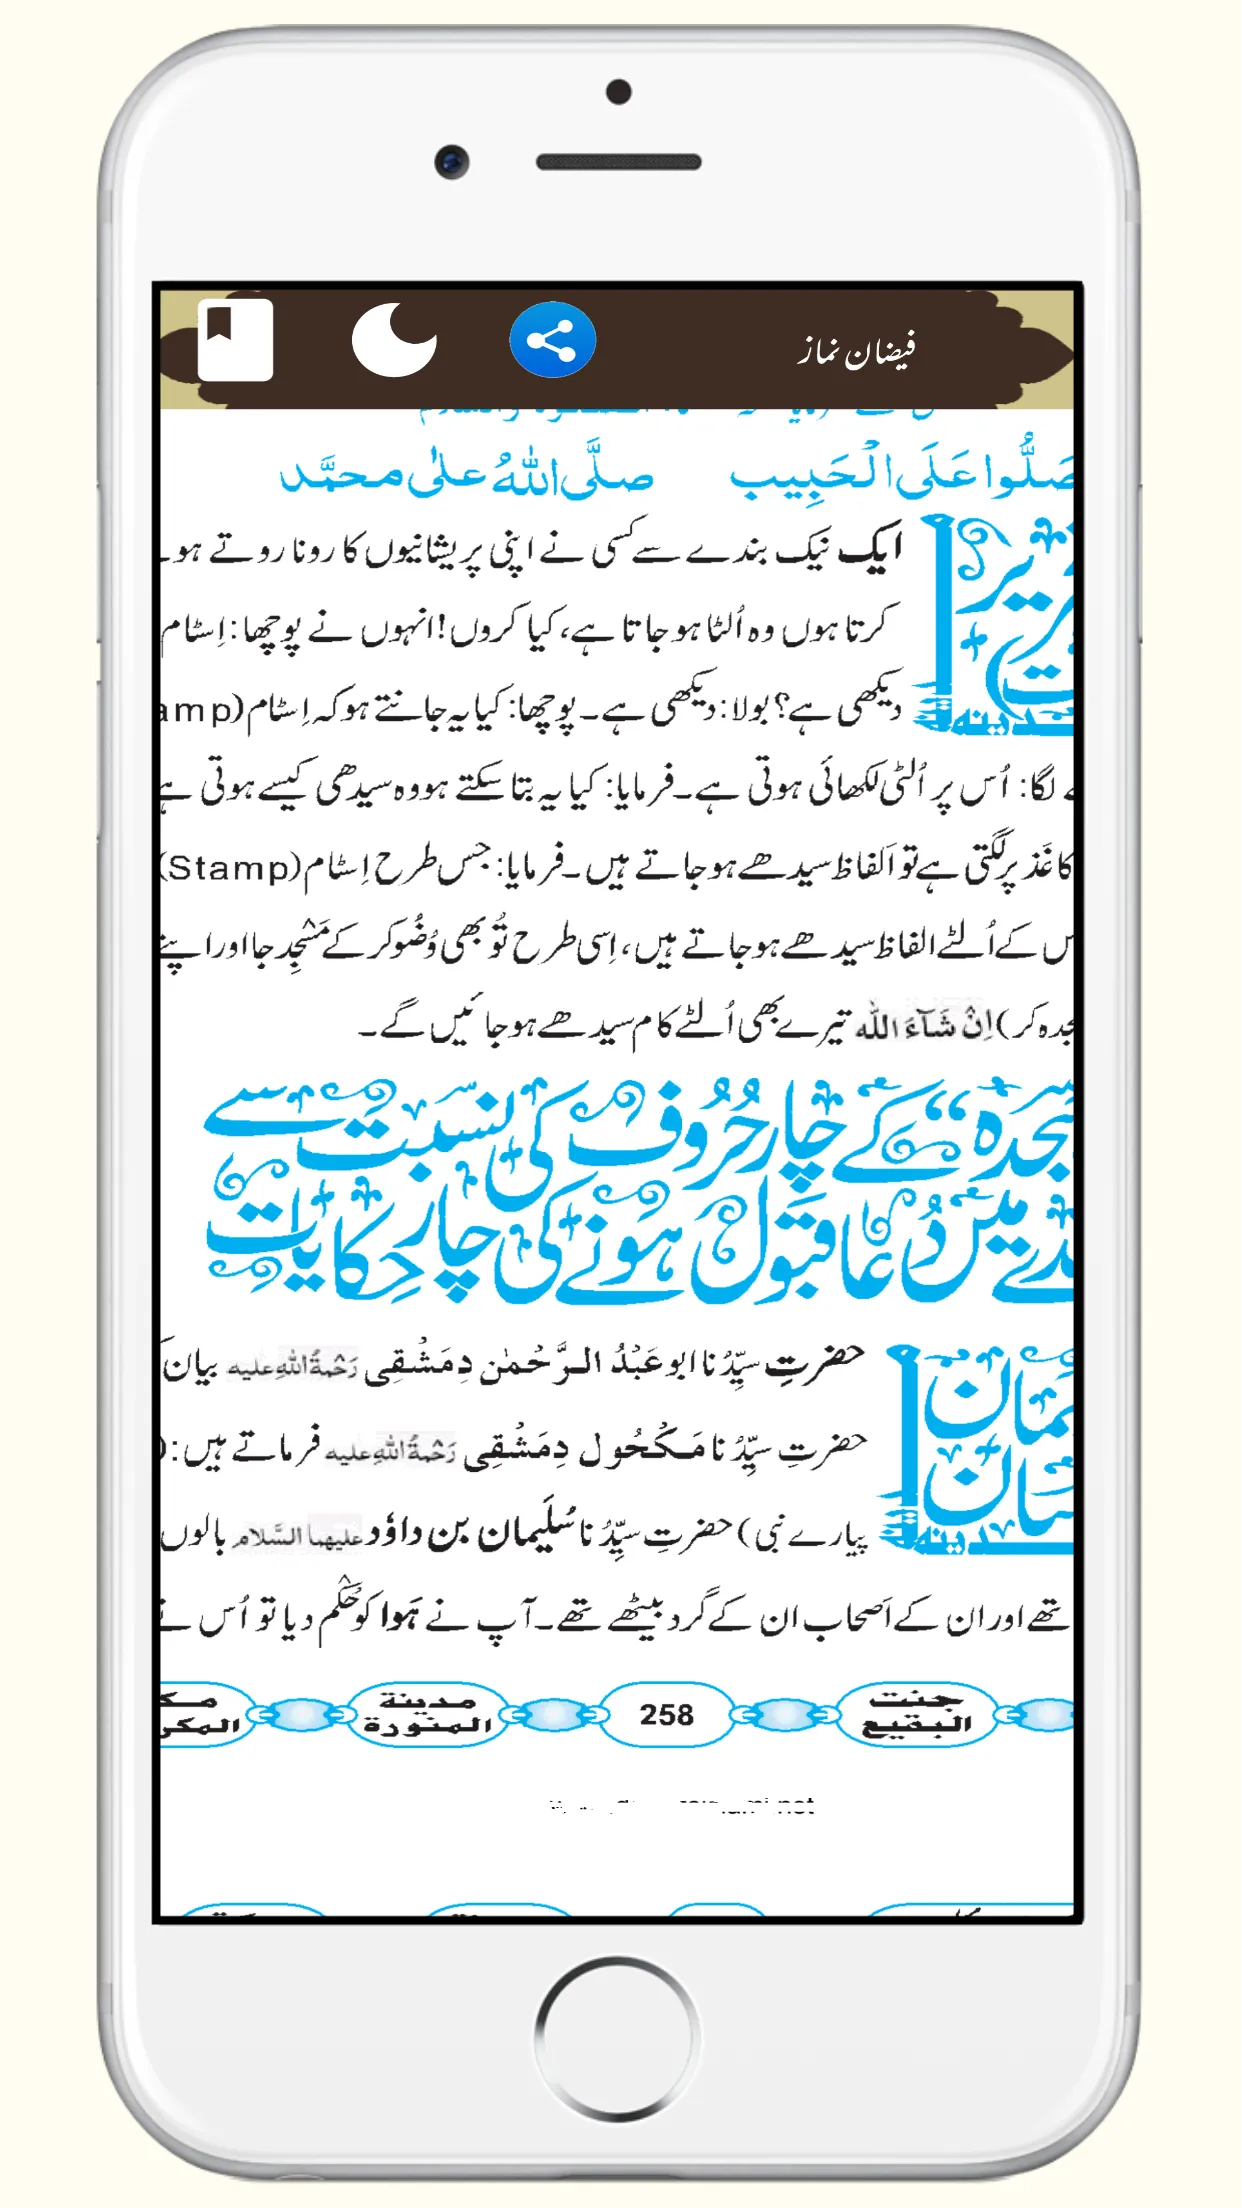 فیضان نماز
صَلُّوا عَلَى الْحَبِيب صلَّى اللهُ علٰى محمَّد
ایک نیک بندے سے کسی نے اپنی پریشانیوں کا رونا روتے
کرتا ہوں وہ اُلٹا ہو جاتا ہے، کیا کروں! انہوں نے پوچھا: اِسٹام
دیکھی ہے؟ بولا: دیکھی ہے۔ پوچھا: کیا یہ جانتے ہو کہ اِسٹام (
لگا: اُس پر اُلٹی لکھائی ہوتی ہے۔ فرمایا: کیا یہ بتا سکتے ہو وہ سیدھی کیسے ہوتی ہے
کاغَذ پر لگتی ہے تو اَلفاظ سیدھے ہو جاتے ہیں۔ فرمایا: جس طرح اِسٹام (Stamp)
کے اُلٹے الفاظ سیدھے ہو جاتے ہیں، اِسی طرح تُو بھی وُضُو کر کے مَسْجِد جا اور اپنے
کر) اِنْ شَآءَ اللّٰه تیرے بھی اُلٹے کام سیدھے ہو جائیں گے۔
کے چار حُرُوف کی نسبت سے
میں دُعا قبول ہونے کی چار حِکایات
حضرتِ سیِّدُنا ابو عَبْدُ الرَّحْمٰن دِمَشْقِی رَحْمَةُ اللهِ علیه بیان
حضرتِ سیِّدُنا مَکْحُول دِمَشْقِی رَحْمَةُ اللهِ علیه فرماتے ہیں:
پیارے نبی) حضرتِ سیِّدُنا سُلَیمان بن داؤد علیهما السَّلام بالوں
تھے اور ان کے اَصحاب ان کے گرد بیٹھے تھے۔ آپ نے ہَوا کو حُکْم دیا تو اُس نے
جنت البقیع 258 مدینة المنورة